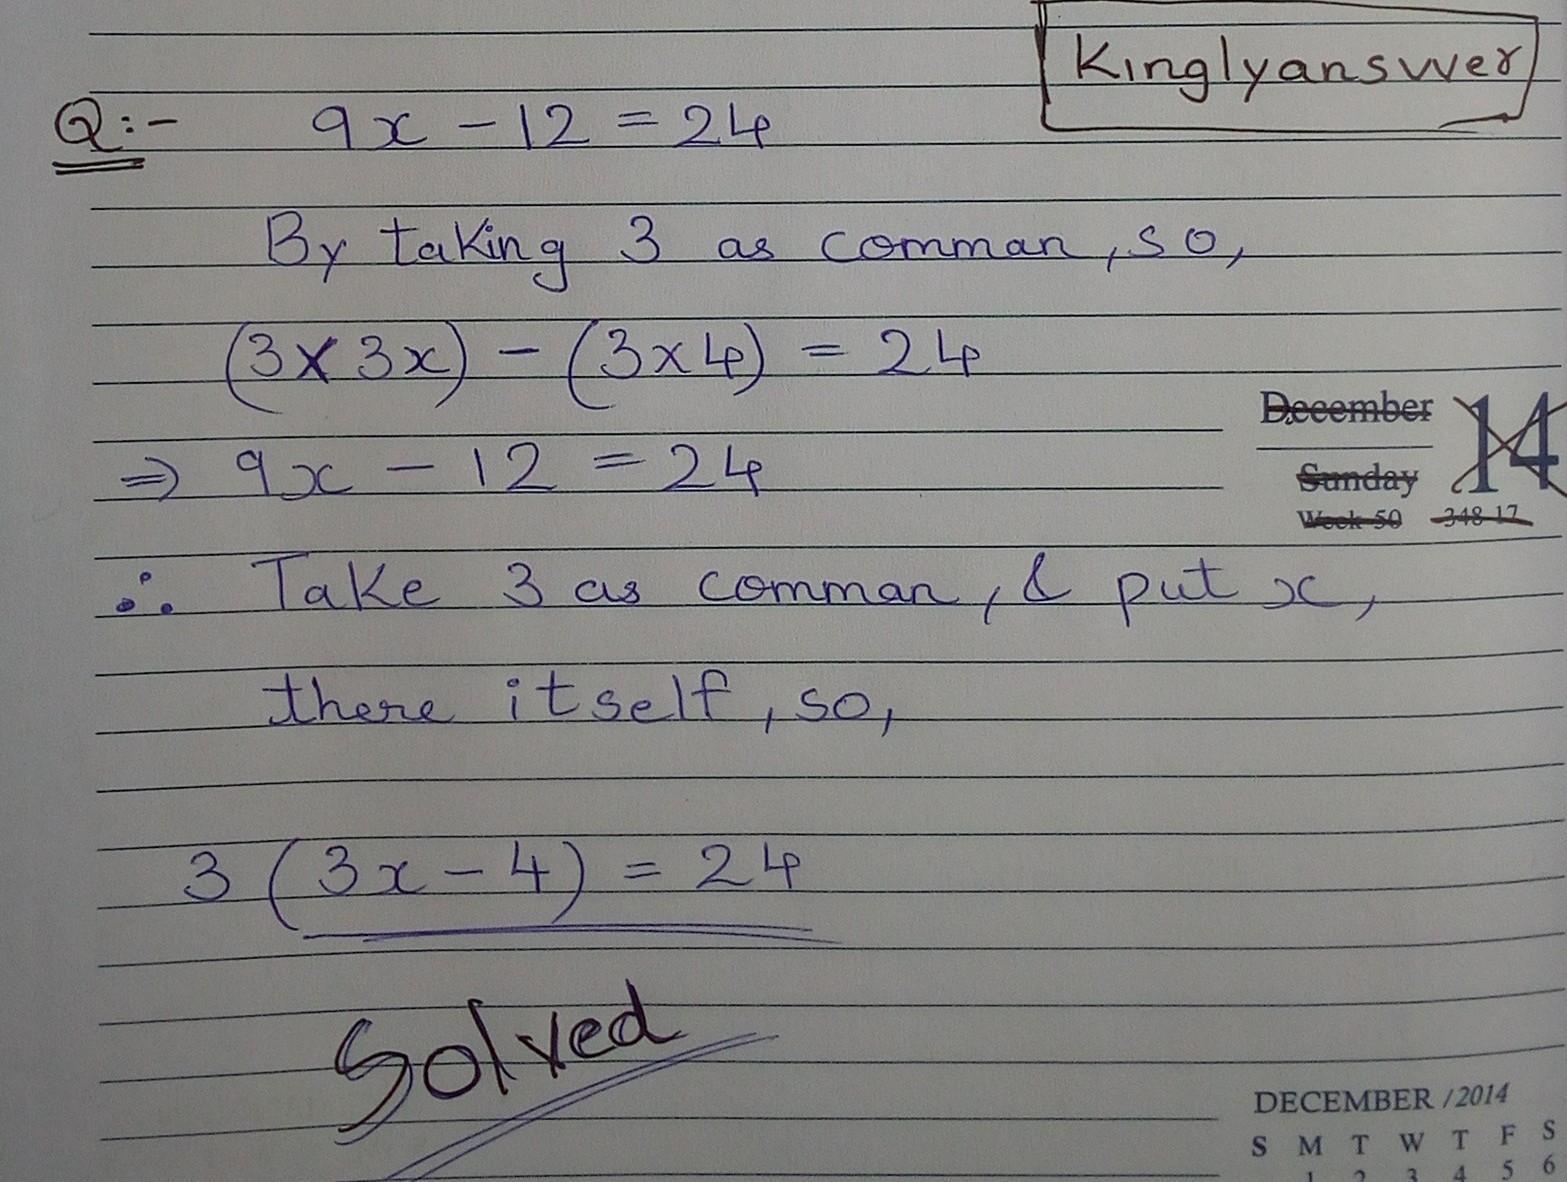 Kinglyansvver
Q:- 9x - 12 = 24
By taking 3 as comman, so,
(3 × 3x) - (3 × 4) = 24
December 14
⇒ 9x - 12 = 24
Sunday
Week 50 348-17
∴ Take 3 as comman, & put x,
there itself, so,
3 (3x - 4) = 24
Solved
DECEMBER / 2014
S M T W T F S
1 2 3 4 5 6